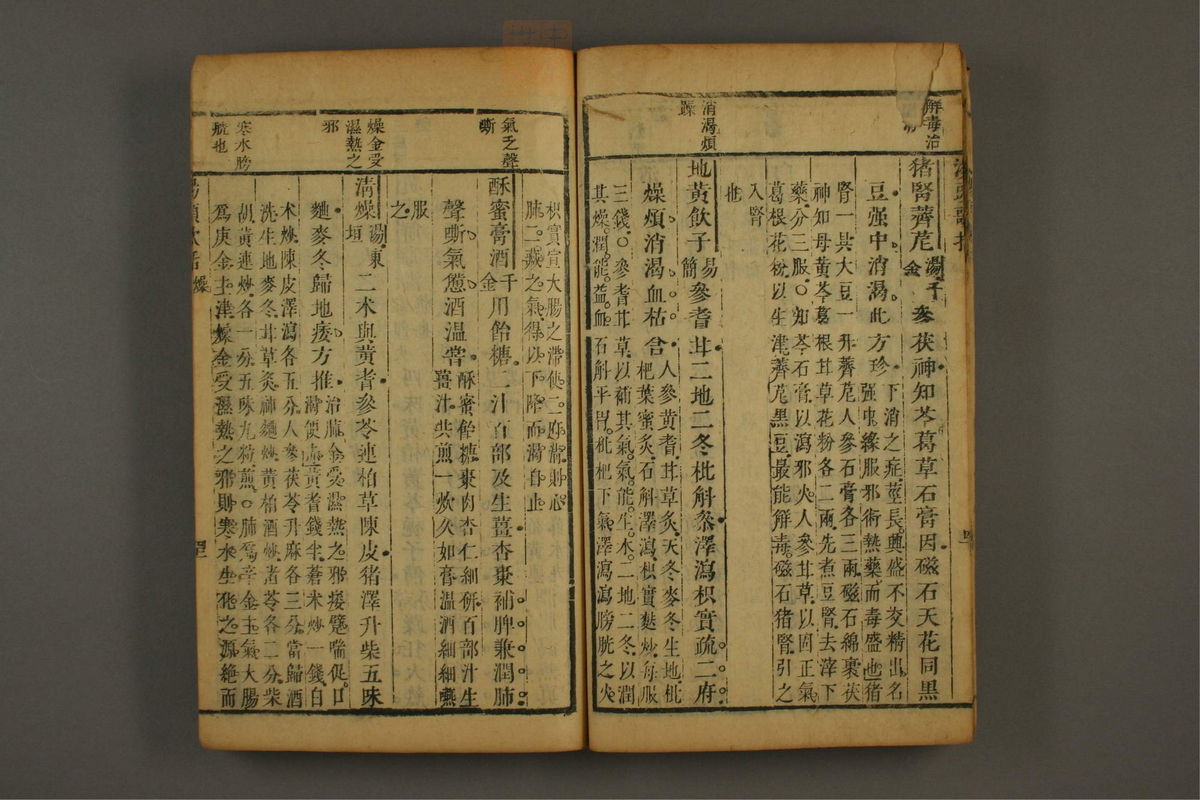 解毒治
猪腎薺苨湯千金參茯神知芩葛草石膏因磁石天花同黑
豆强中消渴此方珍下消之症莖長興盛不交精出名
强中緣服邪術熱藥而毒盛也猪
腎一具大豆一升薺苨人參石膏各三兩磁石綿裹茯
神知母黃芩葛根甘草花粉各二兩先煮豆腎去滓下
藥分三服○知芩石膏以瀉邪火人參甘草以固正氣
葛根花粉以生津薺苨黑豆最能解毒磁石猪腎引之
入腎
也
消渴煩
躁
地黃飲子易簡參耆甘二地二冬枇斛叅澤瀉枳實疏二府
燥煩消渴血枯含人參黃耆甘草炙天冬麥冬生地枇
杷葉蜜炙石斛澤瀉枳實麩炒每服
三錢○參耆甘草以補其氣氣能生水二地二冬以潤
其燥潤能益血石斛平胃枇杷下氣澤瀉瀉膀胱之火
枳實宣大腸之滯使二府清則心
肺二藏之氣得以下降而渴自止
氣乏聲
嘶
酥蜜膏酒千金用飴糖二汁百部及生薑杏棗補脾兼潤肺
聲嘶氣憊酒温嘗酥蜜飴糖棗肉杏仁細研百部汁生
薑汁共煎一炊久如膏温酒細細嚥
服
之
燥金受
濕熱之
邪
清燥湯東垣二术與黃耆參苓連柏草陳皮猪澤升柴五味
麯麥冬歸地痿方推治肺金受濕熱之邪痿躄喘促口
渴便赤黃耆錢半蒼术炒一錢白
术炒陳皮澤瀉各五分人參茯苓升麻各三分當歸酒
洗生地麥冬甘草炙神麯炒黃柏酒炒猪苓各二分柴
胡黃連炒各一分五味九粒煎○肺爲辛金主氣大腸
爲庚金主津燥金受濕熱之邪則寒水生化之源絶而
寒水膀
胱也